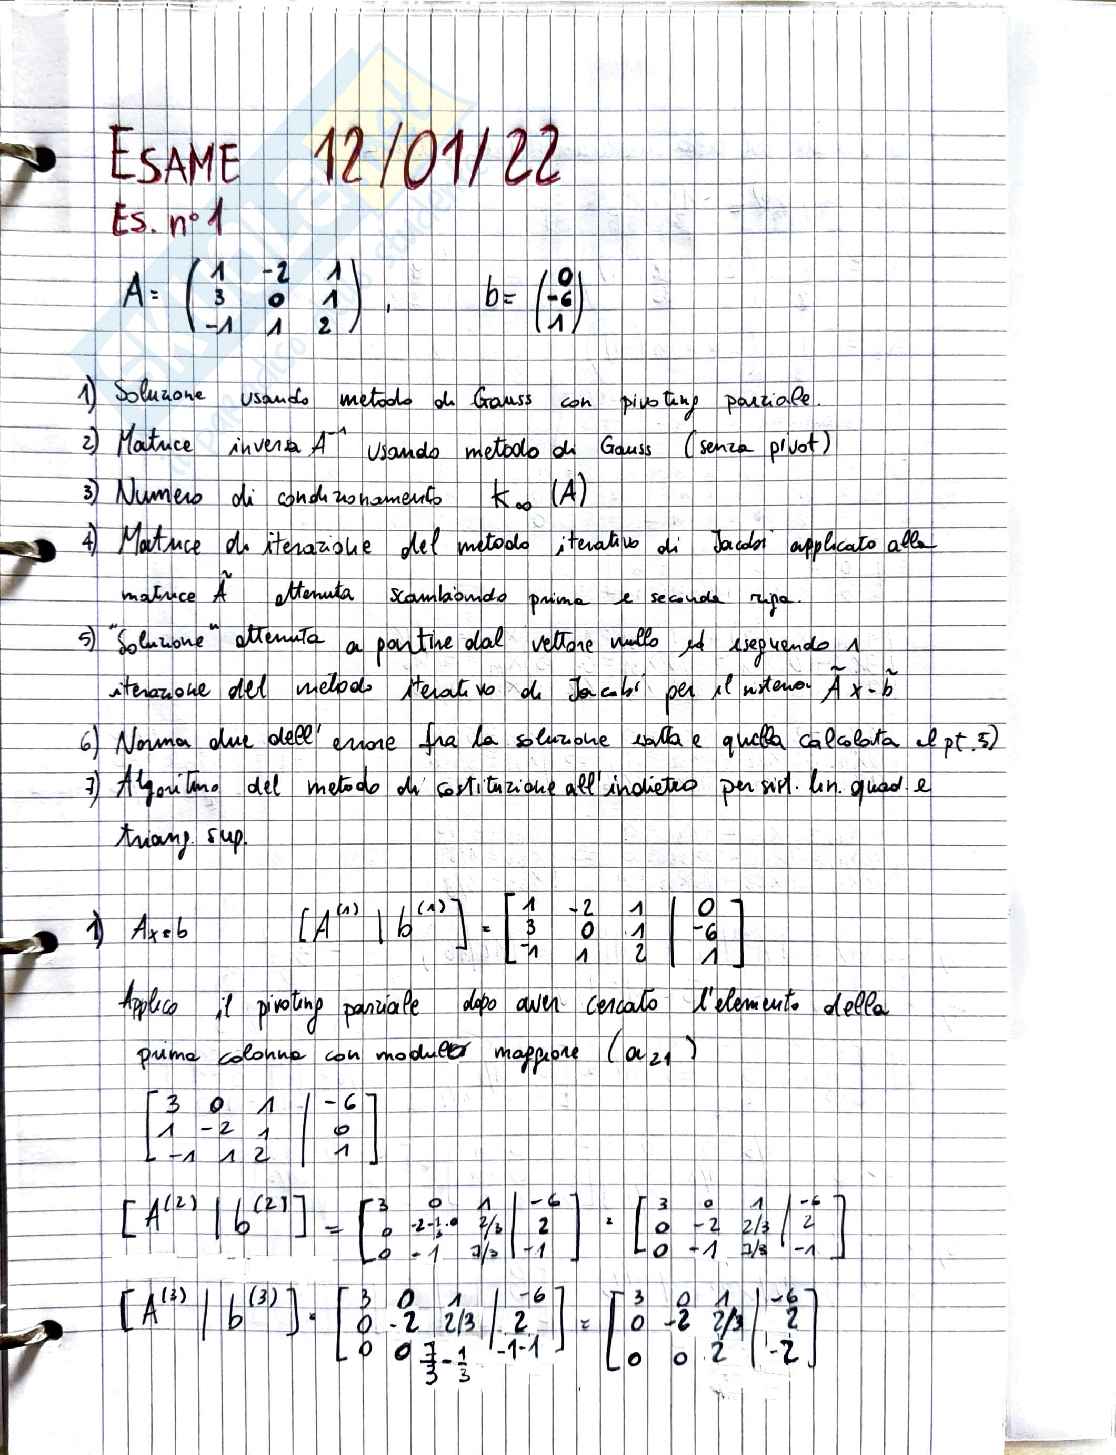 ESAME 12/01/22
Es. n°1
A = ( 1 -2 1 ; 3 0 1 ; -1 1 2 ) , b = ( 0 ; -6 ; 1 )
1) Soluzione usando metodo di Gauss con pivoting parziale.
2) Matrice inversa A⁻¹ usando metodo di Gauss (senza pivot)
3) Numero di condizionamento K∞ (A)
4) Matrice di iterazione del metodo iterativo di Jacobi applicato alla
matrice Ã ottenuta scambiando prima e seconda riga.
5) "Soluzione" ottenuta a partire dal vettore nullo ed eseguendo 1
iterazione del metodo iterativo di Jacobi per il sistema Ã x = b̃
6) Norma due dell'errore fra la soluzione esatta e quella calcolata al pt. 5)
7) Algoritmo del metodo di sostituzione all'indietro per sist. lin. quad. e
triang. sup.
1) Ax=b [A⁽¹⁾ | b⁽¹⁾] = [ 1 -2 1 | 0 ; 3 0 1 | -6 ; -1 1 2 | 1 ]
Applico il pivoting parziale dopo aver cercato l'elemento della
prima colonna con modulo maggiore (a₂₁)
[ 3 0 1 | -6 ; 1 -2 1 | 0 ; -1 1 2 | 1 ]
[A⁽²⁾ | b⁽²⁾] = [ 3 0 1 | -6 ; 0 -2-1/3·0 2/3 | 2 ; 0 -1 7/3 | -1 ] = [ 3 0 1 | -6 ; 0 -2 2/3 | 2 ; 0 -1 7/3 | -1 ]
[A⁽³⁾ | b⁽³⁾] = [ 3 0 1 | -6 ; 0 -2 2/3 | 2 ; 0 0 7/3-1/3 | -1-1 ] = [ 3 0 1 | -6 ; 0 -2 2/3 | 2 ; 0 0 2 | -2 ]